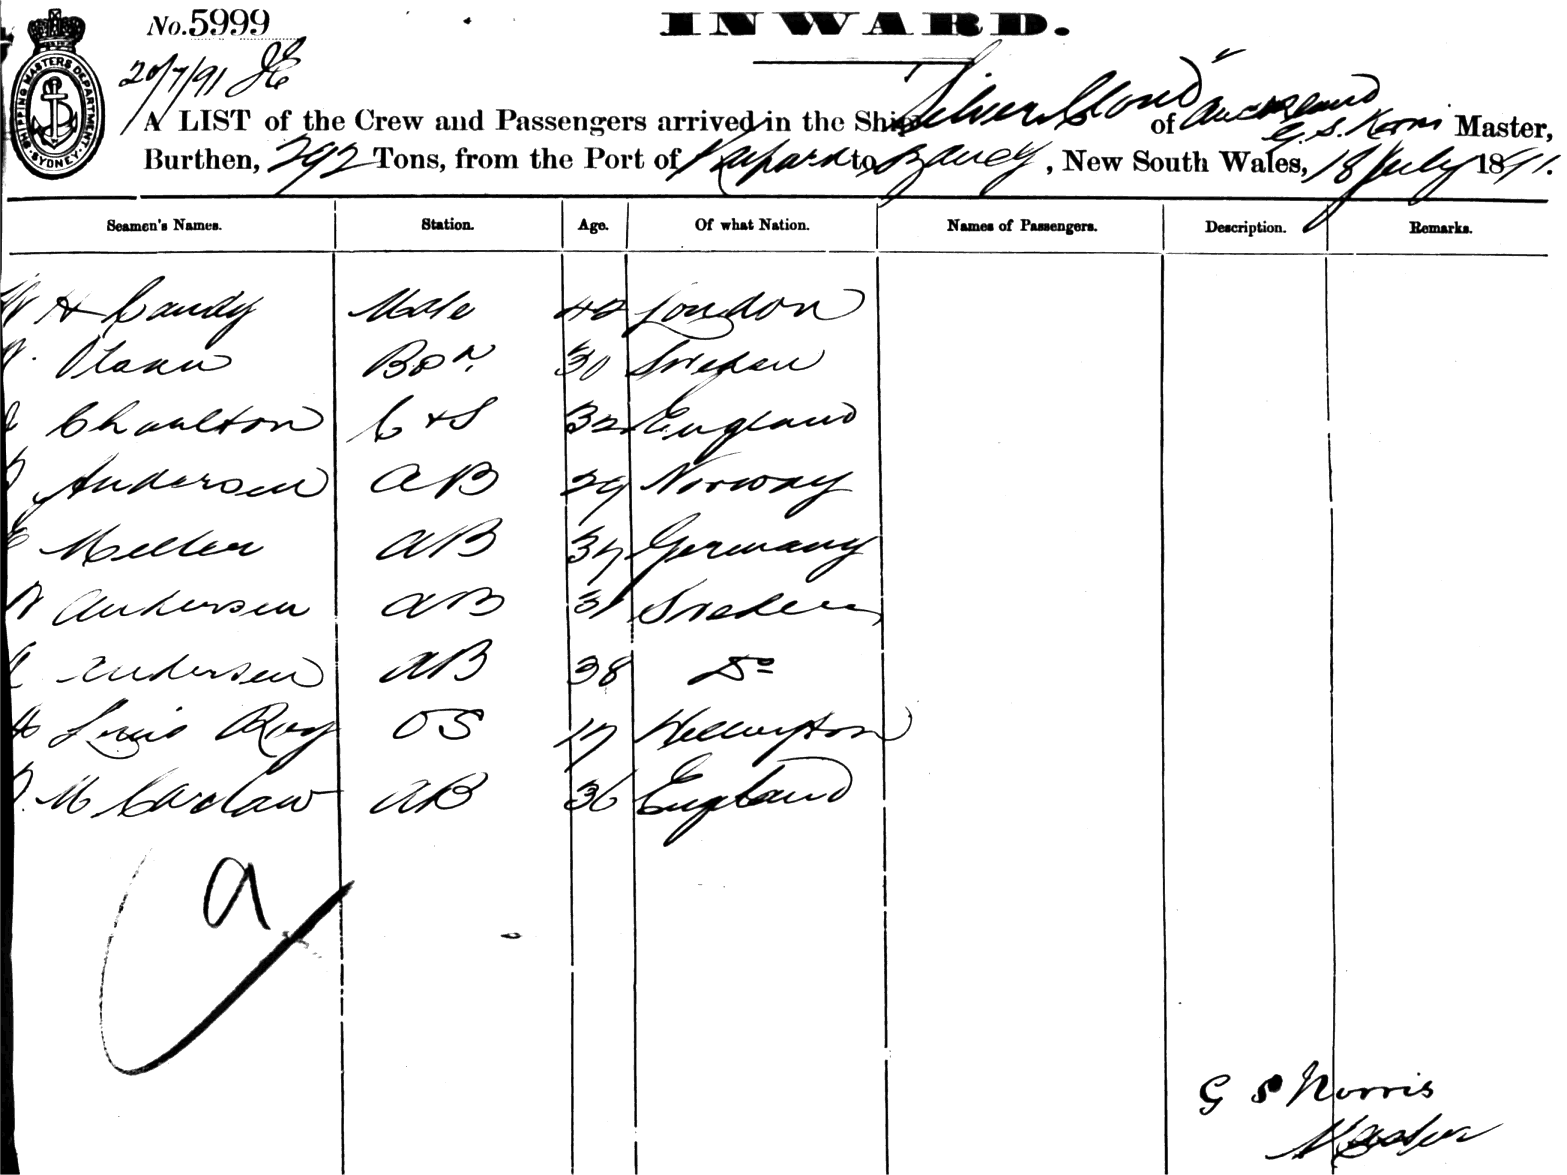 No. 5999
INWARD.
20/7/91 JE
SHIPPING MASTERS DEPARTMENT. SYDNEY.
A LIST of the Crew and Passengers arrived in the Ship Silver Cloud of Auckland G. S. Norris Master,
Burthen, 292 Tons, from the Port of to , New South Wales, 18 July 1891.
Seamen's Names. Station. Age. Of what Nation. Names of Passengers. Description. Remarks.
W H Candy Mate 42 London
Bon. 30 Sweden
Charlton C & S 32 England
Andersen AB 29 Norway
Meller AB 37 Germany
Andersen AB 31 Sweden
Andersen AB 38 Do
H Louis Roy OS 17 Wellington
M Carlaw AB 36 England
9
G S Norris
Master